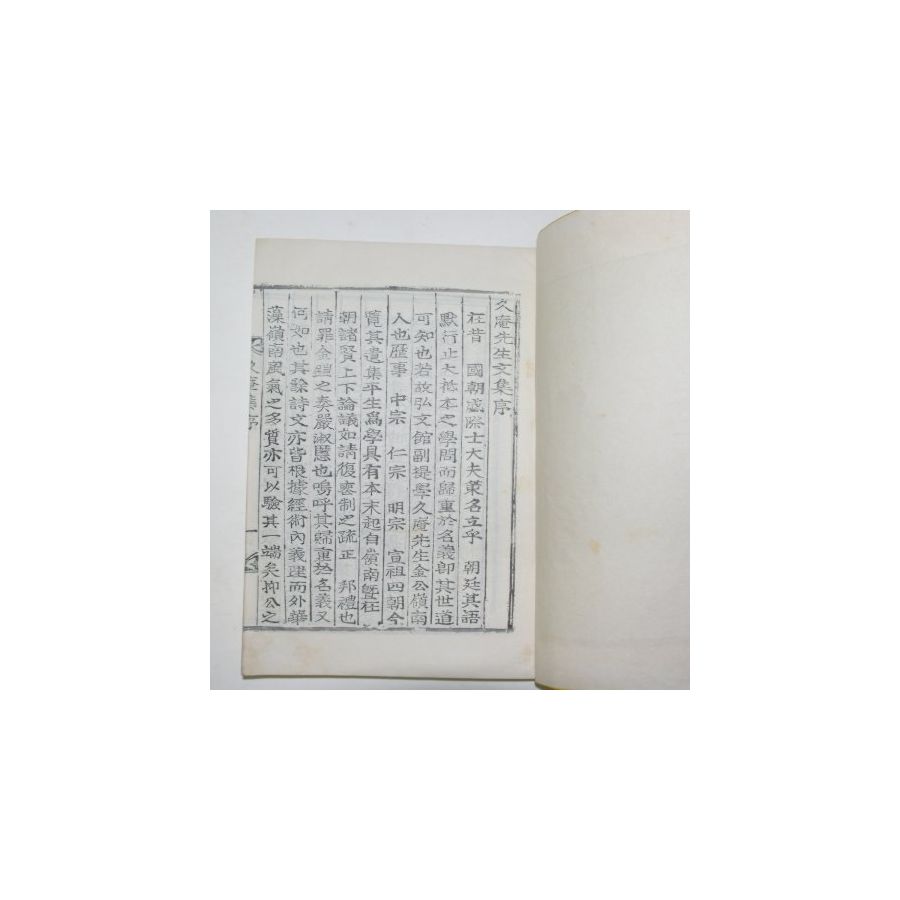 久庵先生文集序
在昔 國朝盛際士大夫策名立乎 朝廷其語
默行止大抵本之學問而歸重於名義卽其世道
可知也若故弘文館副提學久庵先生金公嶺南
人也歷事 中宗 仁宗 明宗 宣祖四朝今
覽其遺集平生爲學具有本末起自嶺南曁在
朝諸賢上下論議如請復喪制之疏正 邦禮也
請罪金鎧之奏嚴淑慝也嗚呼其歸重於名義又
何如也其餘詩文亦皆根據經術內義理而外華
藻嶺南風氣之多質亦可以驗其一端矣抑公之
久庵集序